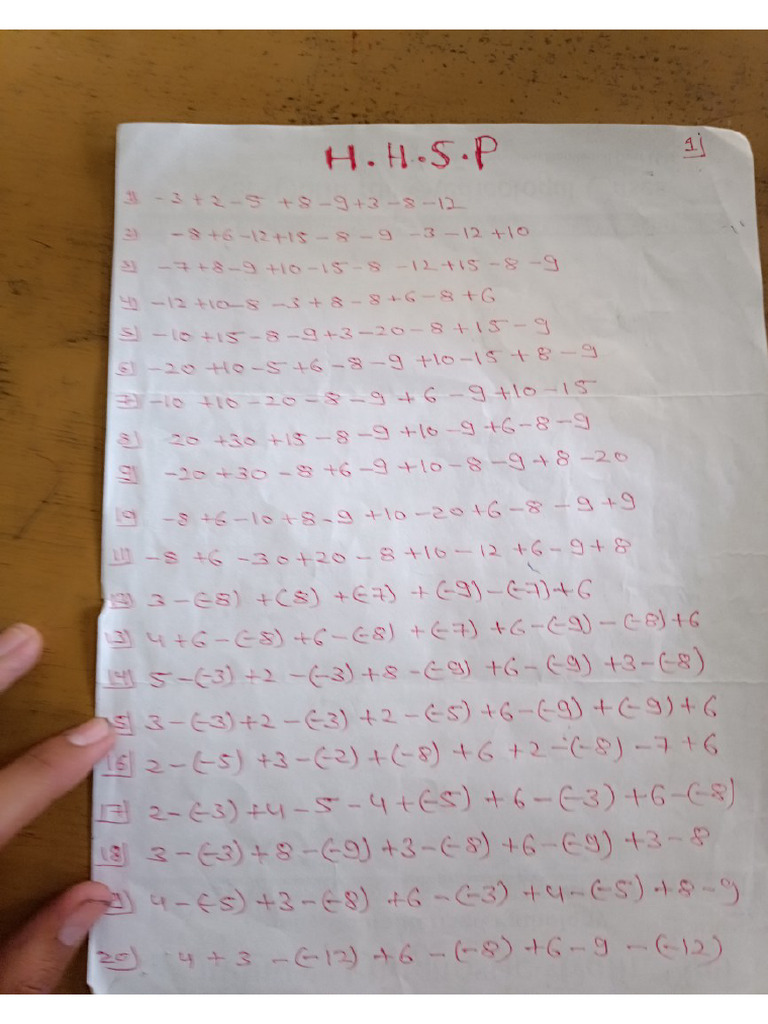 H.H.S.P
1)
1) -3+2-5+8-9+3-8-12
2) -8+6-12+15-8-9-3-12+10
3) -7+8-9+10-15-8-12+15-8-9
4) -12+10-8-3+8-8+6-8+6
5) -10+15-8-9+3-20-8+15-9
6) -20+10-5+6-8-9+10-15+8-9
7) -10+10-20-8-9+6-9+10-15
8) 20+30+15-8-9+10-9+6-8-9
9) -20+30-8+6-9+10-8-9+8-20
10 -8+6-10+8-9+10-20+6-8-9+9
11) -8+6-30+20-8+10-12+6-9+8
12) 3-(-8)+(8)+(-7)+(-9)-(-7)+6
13) 4+6-(-8)+6-(-8)+(-7)+6-(-9)-(-8)+6
14) 5-(-3)+2-(-3)+8-(-9)+6-(-9)+3-(-8)
5) 3-(-3)+2-(-3)+2-(-5)+6-(-9)+(-9)+6
16) 2-(-5)+3-(-2)+(-8)+6+2-(-8)-7+6
17) 2-(-3)+4-5-4+(-5)+6-(-3)+6-(-8)
18) 3-(-3)+8-(-9)+3-(-8)+6-(-9)+3-8
9) 4-(-5)+3-(-8)+6-(-3)+4-(-5)+8-9
20) 4+3-(-12)+6-(-8)+6-9-(-12)